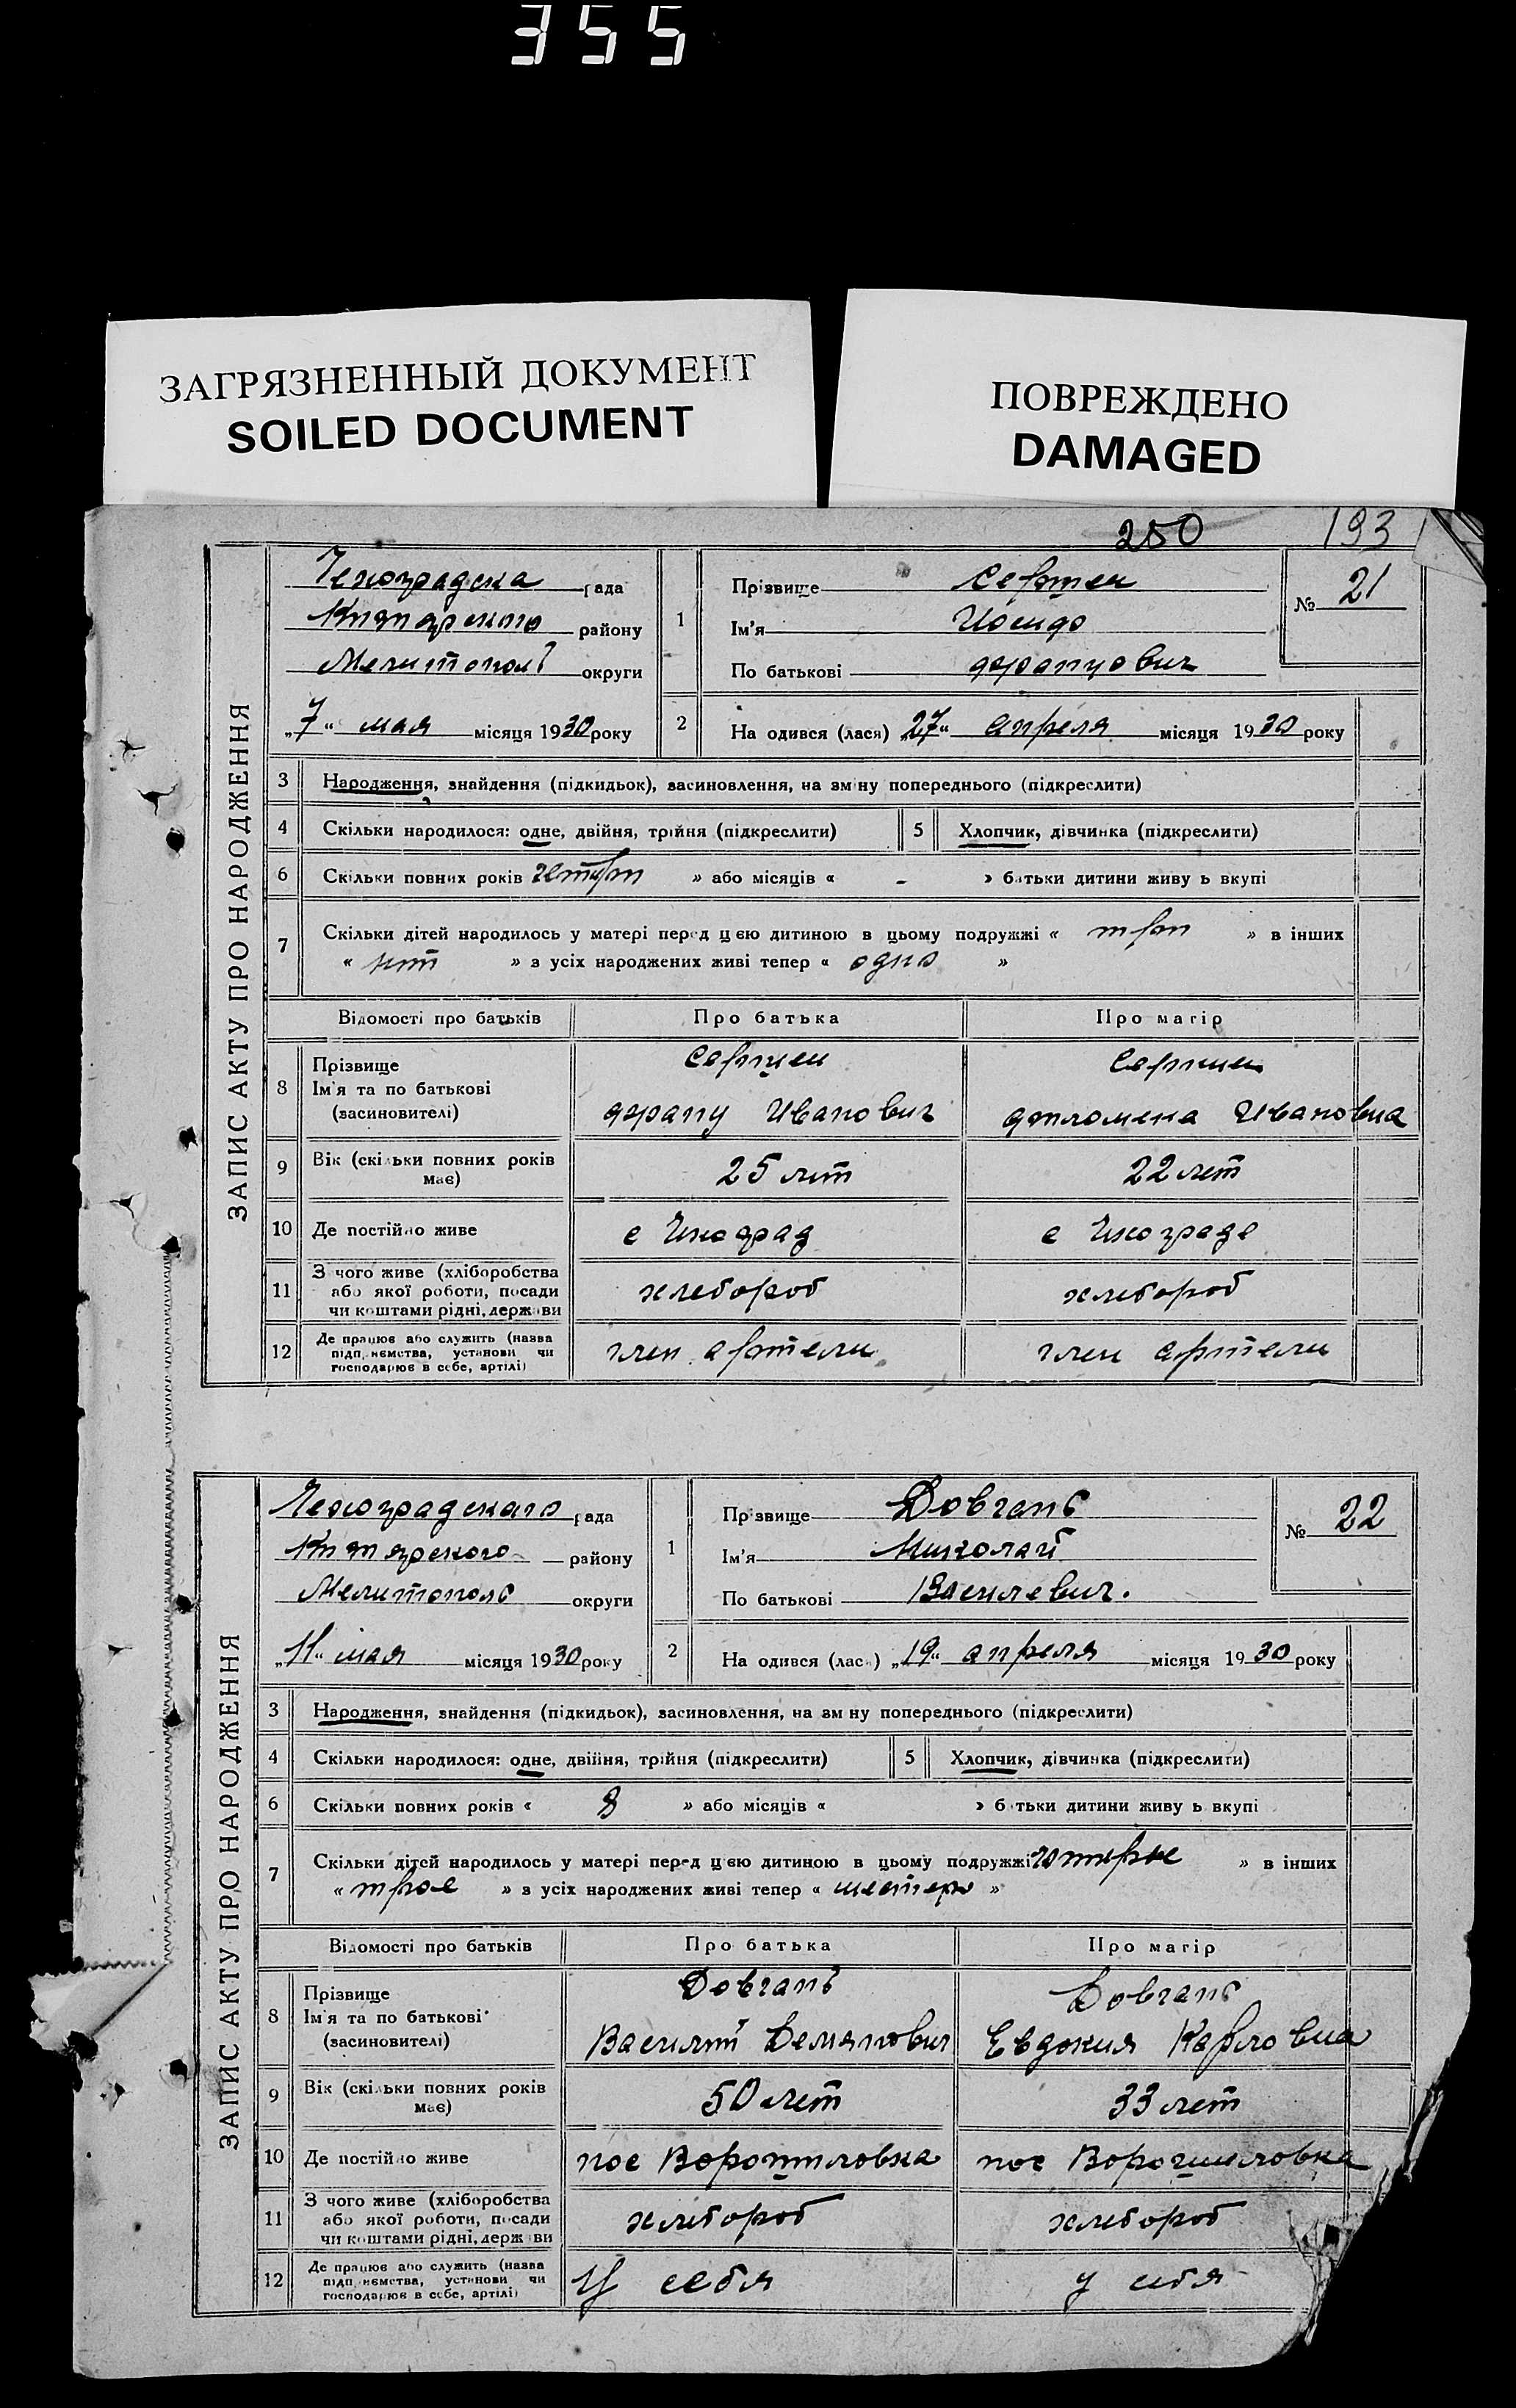 355
ЗАГРЯЗНЕННЫЙ ДОКУМЕНТ
SOILED DOCUMENT
ПОВРЕЖДЕНО
DAMAGED
250
193
ЗАПИС АКТУ ПРО НАРОДЖЕННЯ
Чехоградска рада
району
Мелитополь округи
„7“ мая місяця 1930 року
1
Прізвище
Ім'я
По батькові Францович
№ 21
2
На одився (лася) „27“ апреля місяця 1930 року
3 Народження, знайдення (підкидьок), засиновлення, на зміну попереднього (підкреслити)
4 Скільки народилося: одне, двійня, трійня (підкреслити)
5 Хлопчик, дівчинка (підкреслити)
6 Скільки повних років четыри » або місяців « - » батьки дитини живу ь вкупі
7 Скільки дітей народилось у матері перед цією дитиною в цьому подружжі « три » в інших
« нет » з усіх народжених живі тепер « одно »
Відомості про батьків Про батька Про матір
8 Прізвище
Ім'я та по батькові
(засиновителі)
Франц Иванович
Филомена Ивановна
9 Вік (скільки повних років має) 25 лет 22 лет
10 Де постійно живе с Чехоград с Чехограде
11 З чого живе (хліборобства
або якої роботи, посади
чи коштами рідні, держави
хлебороб хлебороб
12 Де працює або служить (назва
підприємства, установи чи
господарює в себе, артілі)
член артели член артели
ЗАПИС АКТУ ПРО НАРОДЖЕННЯ
Чехоградскаго рада
району
Мелитополь округи
„11“ мая місяця 1930 року
1
Прізвище Довгань
Ім'я Николай
По батькові Василевич.
№ 22
2
На одився (лася) „19“ апреля місяця 1930 року
3 Народження, знайдення (підкидьок), засиновлення, на зміну попереднього (підкреслити)
4 Скільки народилося: одне, двійня, трійня (підкреслити)
5 Хлопчик, дівчинка (підкреслити)
6 Скільки повних років « 8 » або місяців « » батьки дитини живу ь вкупі
7 Скільки дітей народилось у матері перед цією дитиною в цьому подружжі » в інших
« трое » з усіх народжених живі тепер « шестеро »
Відомості про батьків Про батька Про матір
8 Прізвище
Ім'я та по батькові
(засиновителі)
Довгань Довгань
Василий Демянович Евдокия Карловна
9 Вік (скільки повних років має) 50 лет 33 лет
10 Де постійно живе пос Ворошиловка пос Ворошиловка
11 З чого живе (хліборобства
або якої роботи, посади
чи коштами рідні, держави
хлебороб хлебороб
12 Де працює або служить (назва
підприємства, установи чи
господарює в себе, артілі)
У себя у себя